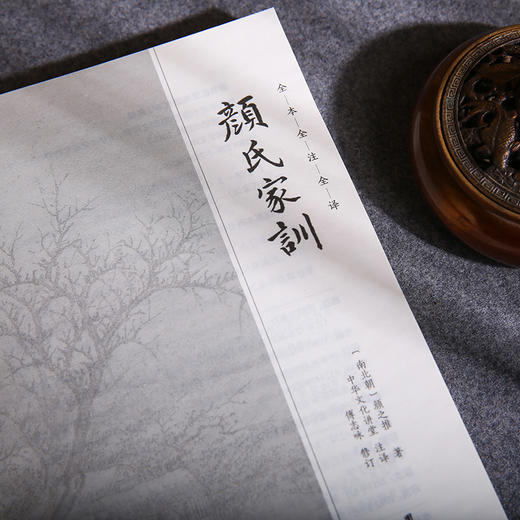 全本全注全译
顔氏家訓
（南北朝）颜之推 著
中华文化讲堂 注译
傅志咏 修订